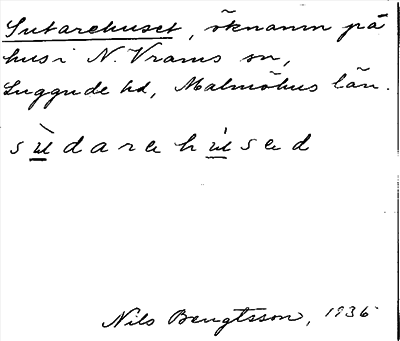 Sutarehuset, öknamn på
hus i N. Vrams sn,
Luggude hd, Malmöhus län.
sùdarehúsed
Nils Bengtsson, 1936